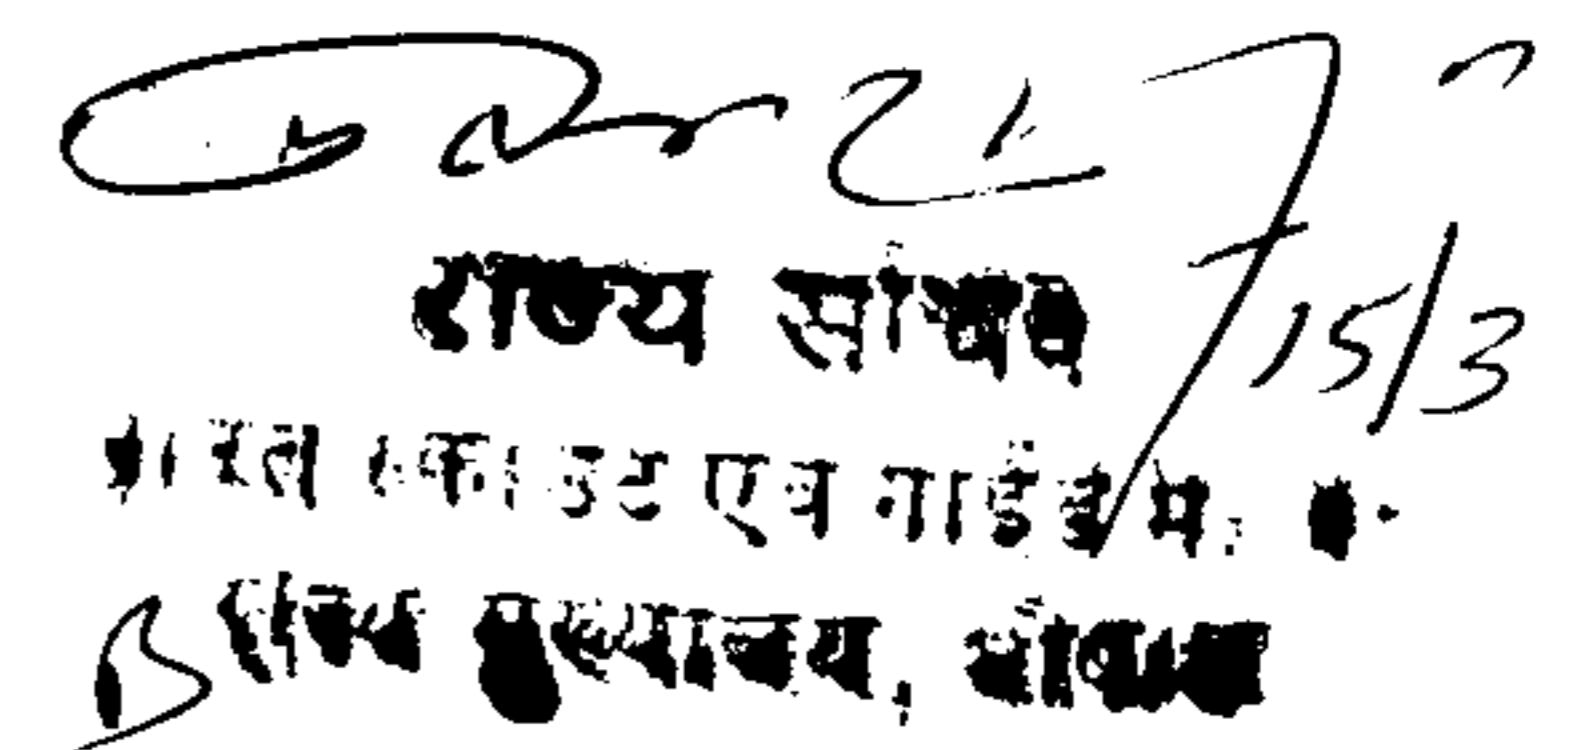 15/3
राज्य सचिव
भारत स्काउट एवं गाईड म. प्र.
राज्य मुख्यालय, भोपाल